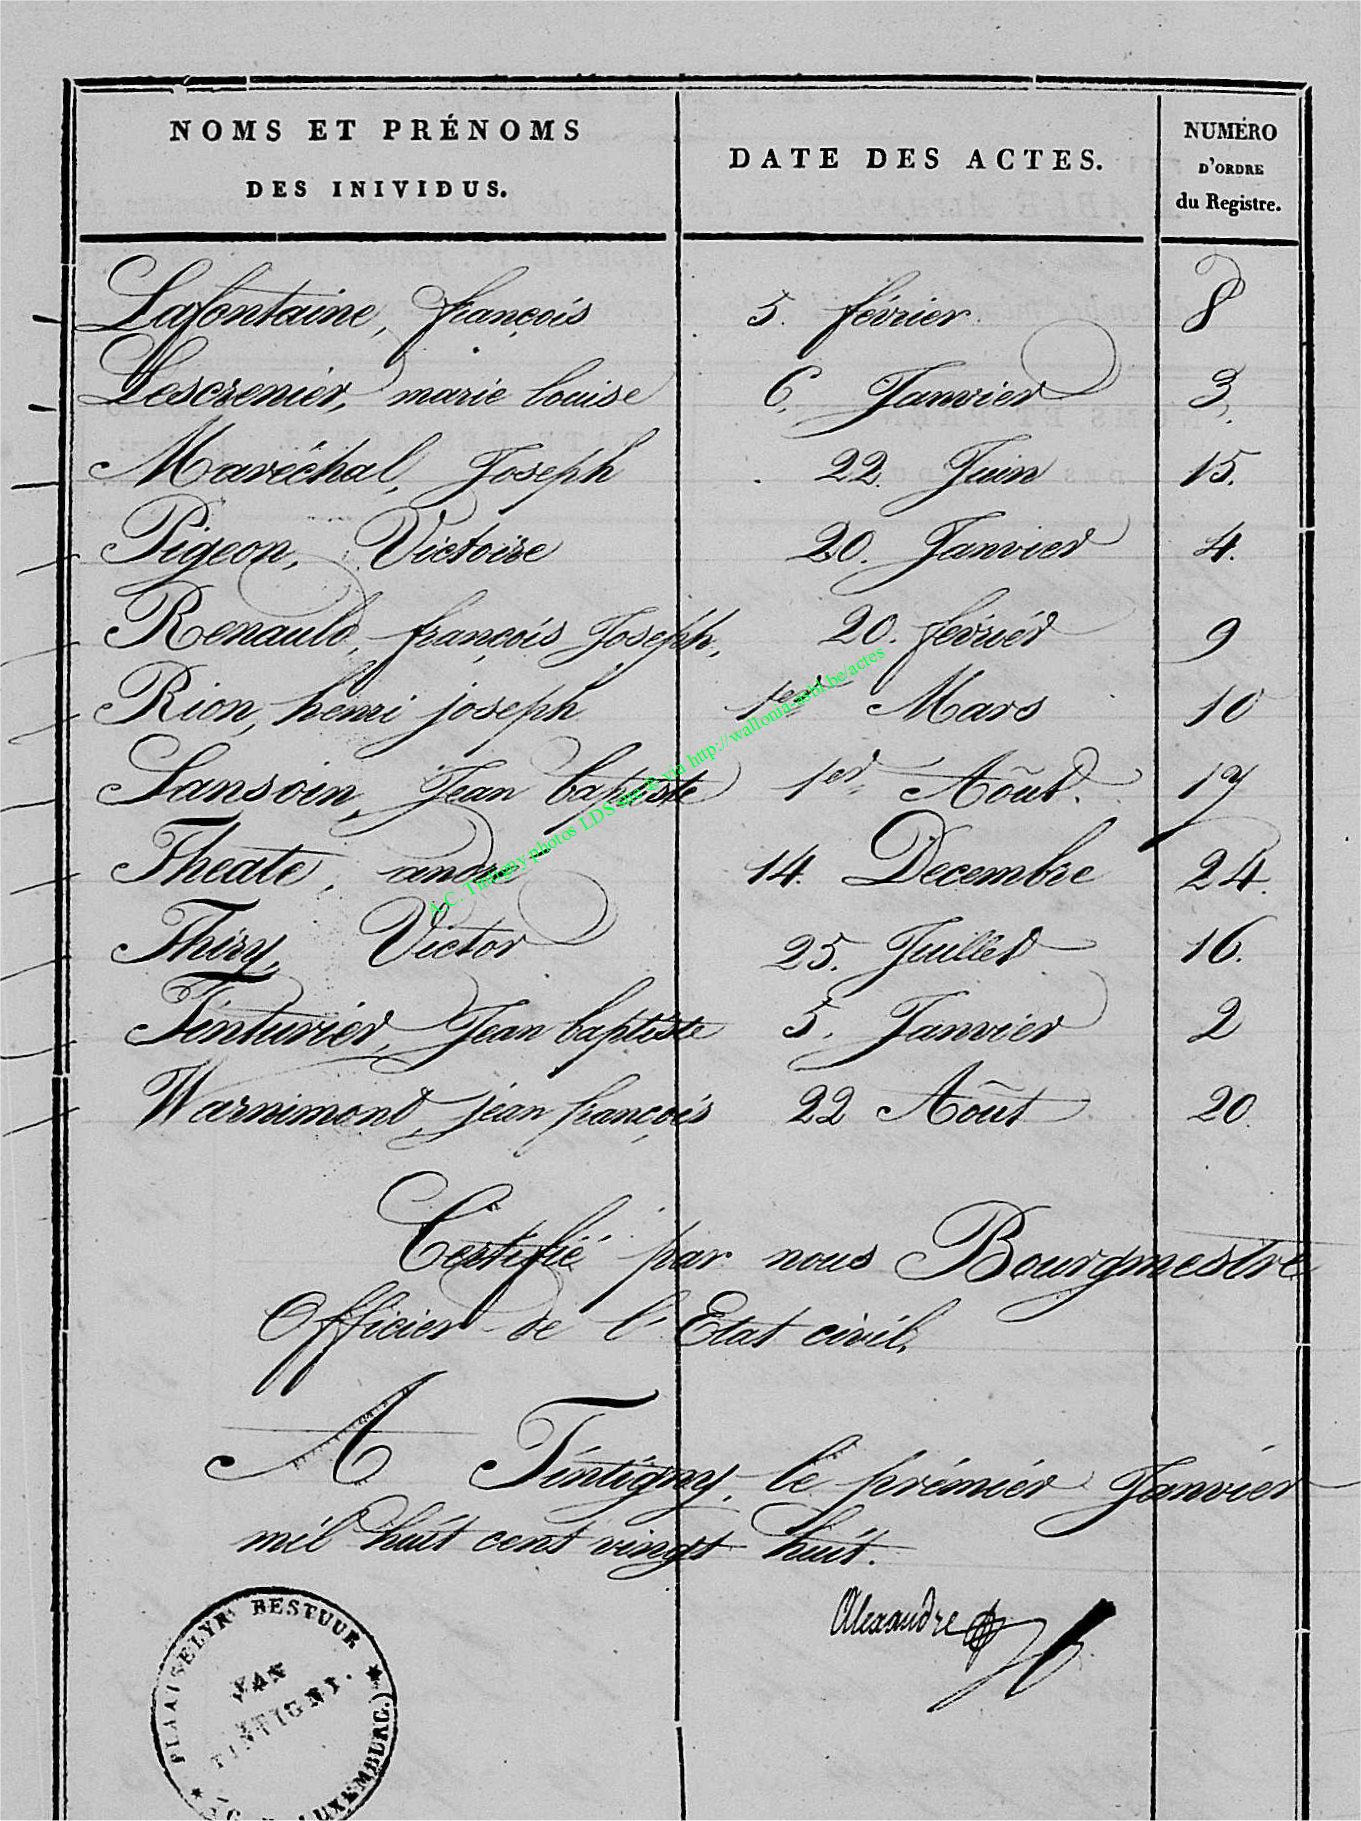 NOMS ET PRÉNOMS
DES INIVIDUS.
DATE DES ACTES.
NUMÉRO
D'ORDRE
du Registre.
Lafontaine, françois 5. février 8
Lescrenier, marie louise 6. Janvier 3.
Maréchal, Joseph 22. Juin 15.
Pigeon, Victoire 20. Janvier 4.
Renauld, françois Joseph, 20. février 9
Rion, henri joseph 1er Mars 10
Sansoin, Jean baptiste 1er Aôut. 17
Theate, andré 14. Decembre 24.
Thiry, Victor 25. Juillet 16.
Tinturier, Jean baptiste 5. Janvier 2
Warnimont, jean françois 22 Aôut 20.
Certifié par nous Bourgmestre
Officier de l'Etat civil.
A Tintigny, le prémier Janvier
mil huit cent vingt huit.
Alexandre
PLAATSELYK BESTUUR
VAN
TINTIGNY.
LUXEMBURG.)
A.C. Tintigny photos LDS site P. via http://wallonia-asbl.be/actes